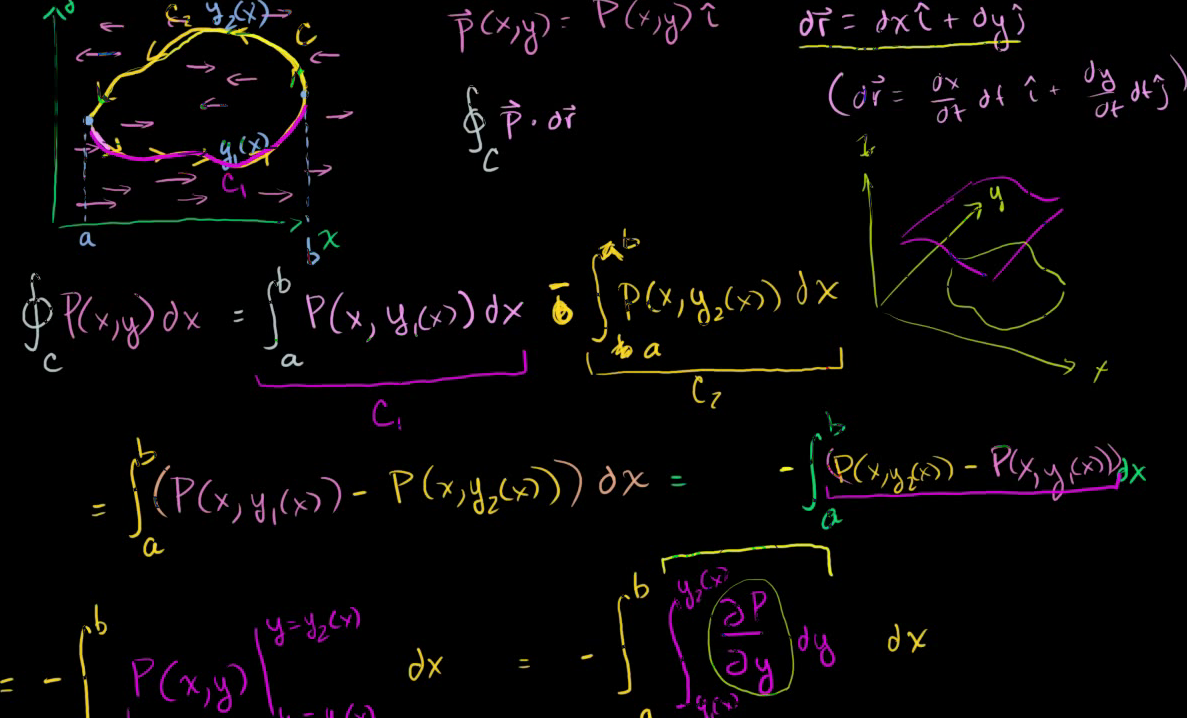 C₂ y₂(x) C
y₁(x)
C₁
a b x
P⃗(x,y) = P(x,y) î
dr⃗ = dx î + dy ĵ
∮_C P⃗ · dr⃗
(dr⃗ = dx/dt dt î + dy/dt dt ĵ)
y
x
∮_C P(x,y) dx = ∫_a^b P(x, y₁(x)) dx - ∫_a^b P(x, y₂(x)) dx
C₁ C₂
= ∫_a^b (P(x, y₁(x)) - P(x, y₂(x))) dx = - ∫_a^b (P(x, y₂(x)) - P(x, y₁(x))) dx
= - ∫^b P(x,y) |^{y=y₂(x)} dx = - ∫_a^b ∫_{y₁(x)}^{y₂(x)} ∂P/∂y dy dx